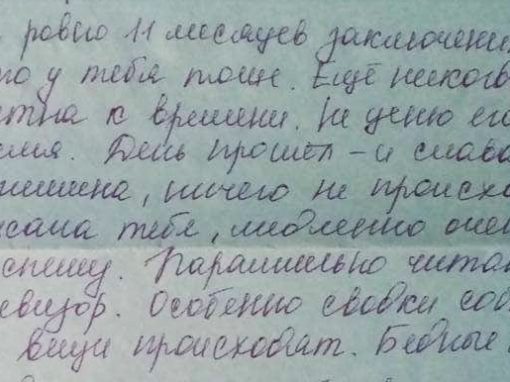 ровно 11 месяцев заключени
у тебя тоже. Ещё никог
к времени. Не ценю ег
День прошёл - и слава
ничего не происхо
тебе, медленно оче
спешу. Параллельно чита
евизор. Особенно сводки соб
вещи происходят. Бедные